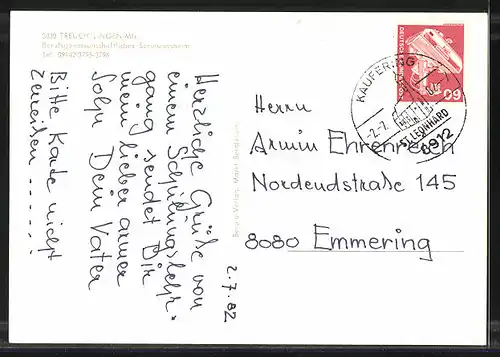 8830 TREUCHTLINGEN/Mfr.
Berufsgenossenschaftliches
Tel. 09142/3795-3796
Herzliche Grüße von
einem Schulungslehr-
gang sendet Dir
mein lieber armer
Sohn Dein Vater
Bitte Karte nicht
zerreissen ......!
2.7.82
Herrn
Armin Ehrenreich
Nordendstraße 145
8080 Emmering
KAUFERING
-2.-7.
ST. LEONHARD
8912
DEUTSCHE BUNDESPOST
60